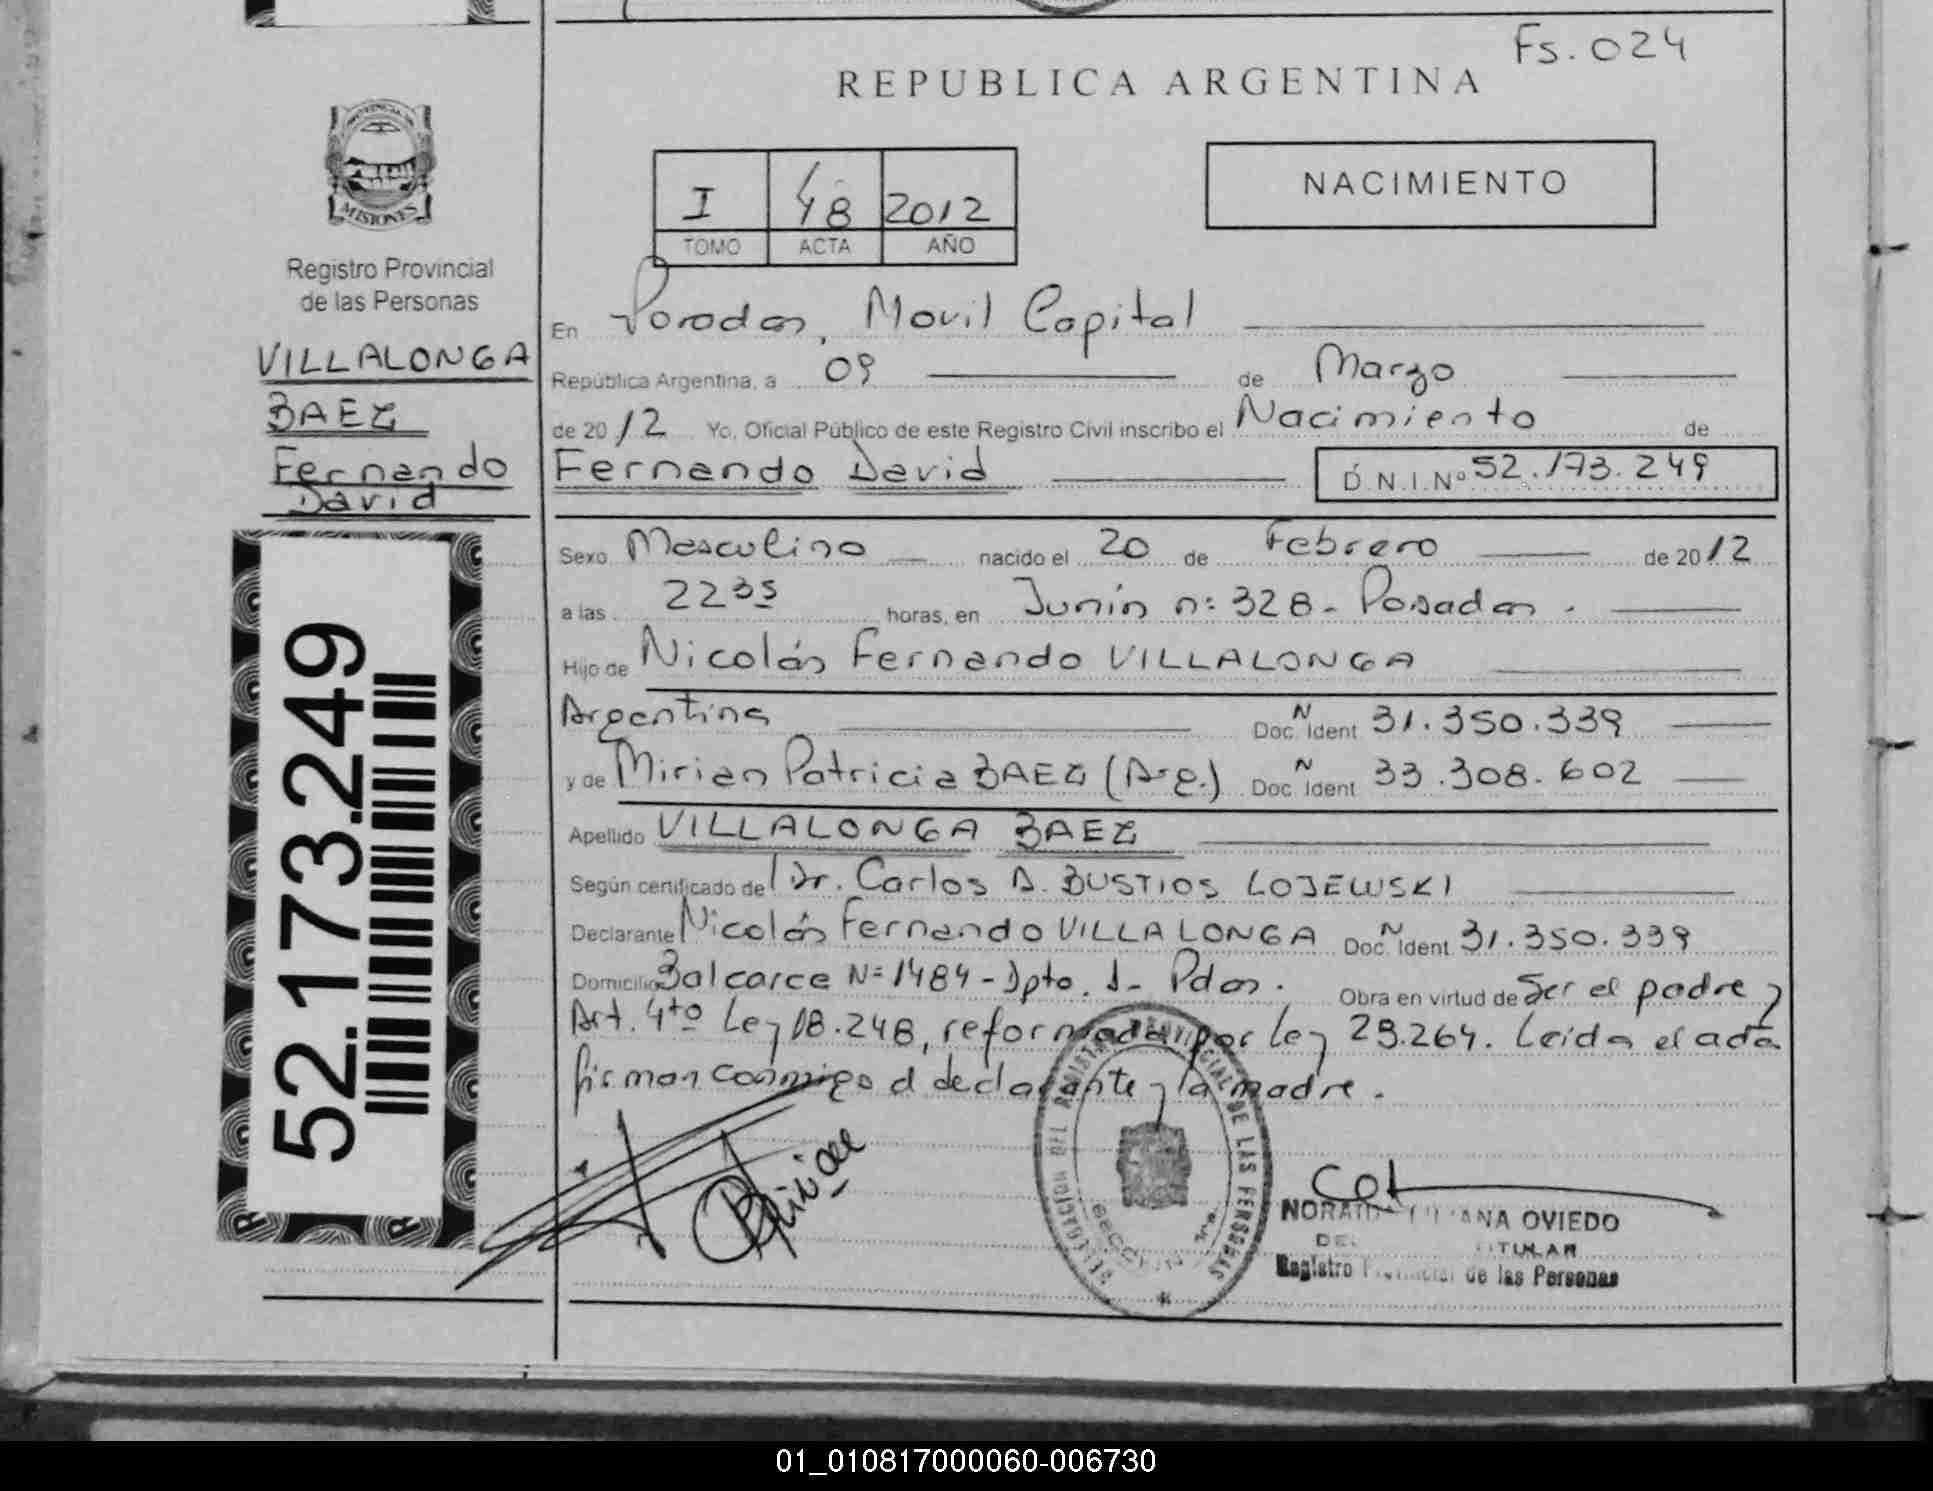 Fs. 024
REPUBLICA ARGENTINA
I 48 2012
TOMO ACTA AÑO
NACIMIENTO
PROVINCIA DE
MISIONES
Registro Provincial
de las Personas
VILLALONGA
BAEZ
Fernando
David
52.173.249
En Posadas, Movil Capital
República Argentina, a 09 de Marzo
de 2012 Yo, Oficial Público de este Registro Civil inscribo el Nacimiento de
Fernando David D.N.I.Nº 52.173.249
Sexo Masculino nacido el 20 de Febrero de 2012
a las 22 35 horas, en Junín nº 328 - Posadas.
Hijo de Nicolás Fernando VILLALONGA
Argentina Doc. N Ident 31.350.339
y de Mirian Patricia BAEZ (Arg.) Doc. Ñ Ident 33.308.602
Apellido VILLALONGA BAEZ
Según certificado de Dr. Carlos A. BUSTIOS LOJEWSKI
Declarante Nicolás Fernando VILLALONGA Doc. N Ident 31.350.339
Domicilio Balcarce Nº 1484 - Dpto. 1 - Pdas. Obra en virtud de Ser el padre y
Art. 4to Ley 18.248, reformada por Ley 23.264. Leida el acta
firman conmigo el declarante y la madre.
REGISTRO PROVINCIAL DE LAS PERSONAS
OVIEDO
TITULAR
Registro Provincial de las Personas
01_010817000060-006730